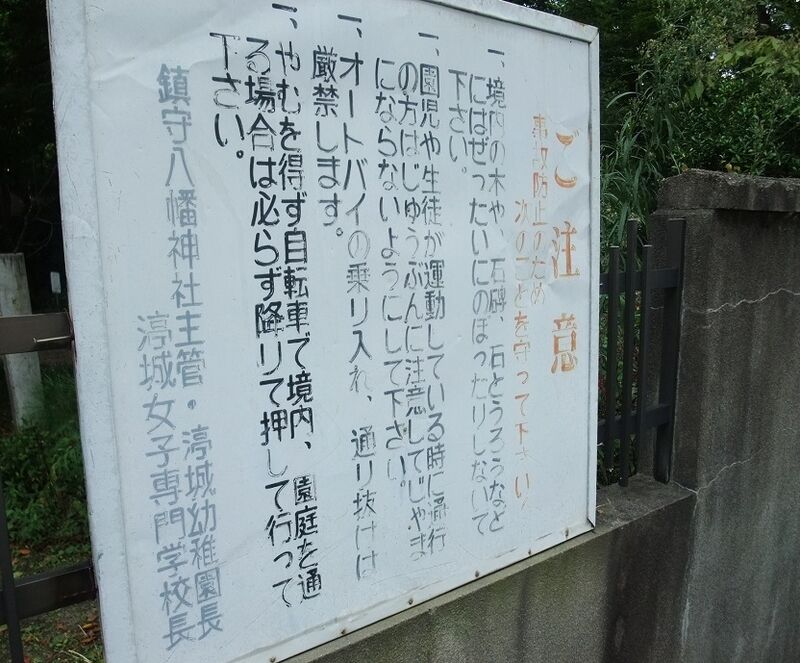 ご注意
事故防止のため
次のことを守って下さい
一、境内の木や、石碑、石とうろうなど
にはぜったいにのぼったりしないで
下さい。
一、園児や生徒が運動している時に通行
の方はじゅうぶんに注意してじゃま
にならないようにして下さい。
一、オートバイの乗り入れ、通り抜けは
厳禁します。
一、やむを得ず自転車で境内、園庭を通
る場合は必らず降りて押して行って
下さい。
鎮守八幡神社主管・渟城幼稚園長
渟城女子専門学校長